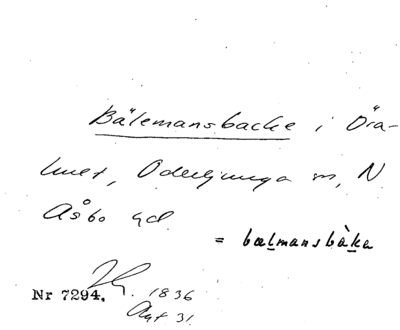 Bälemansbacke i Öra-
hult, Oderljunga sn, N
Åsbo hd
= bælmansbàka
Nr 7294. 1836
Akt 31